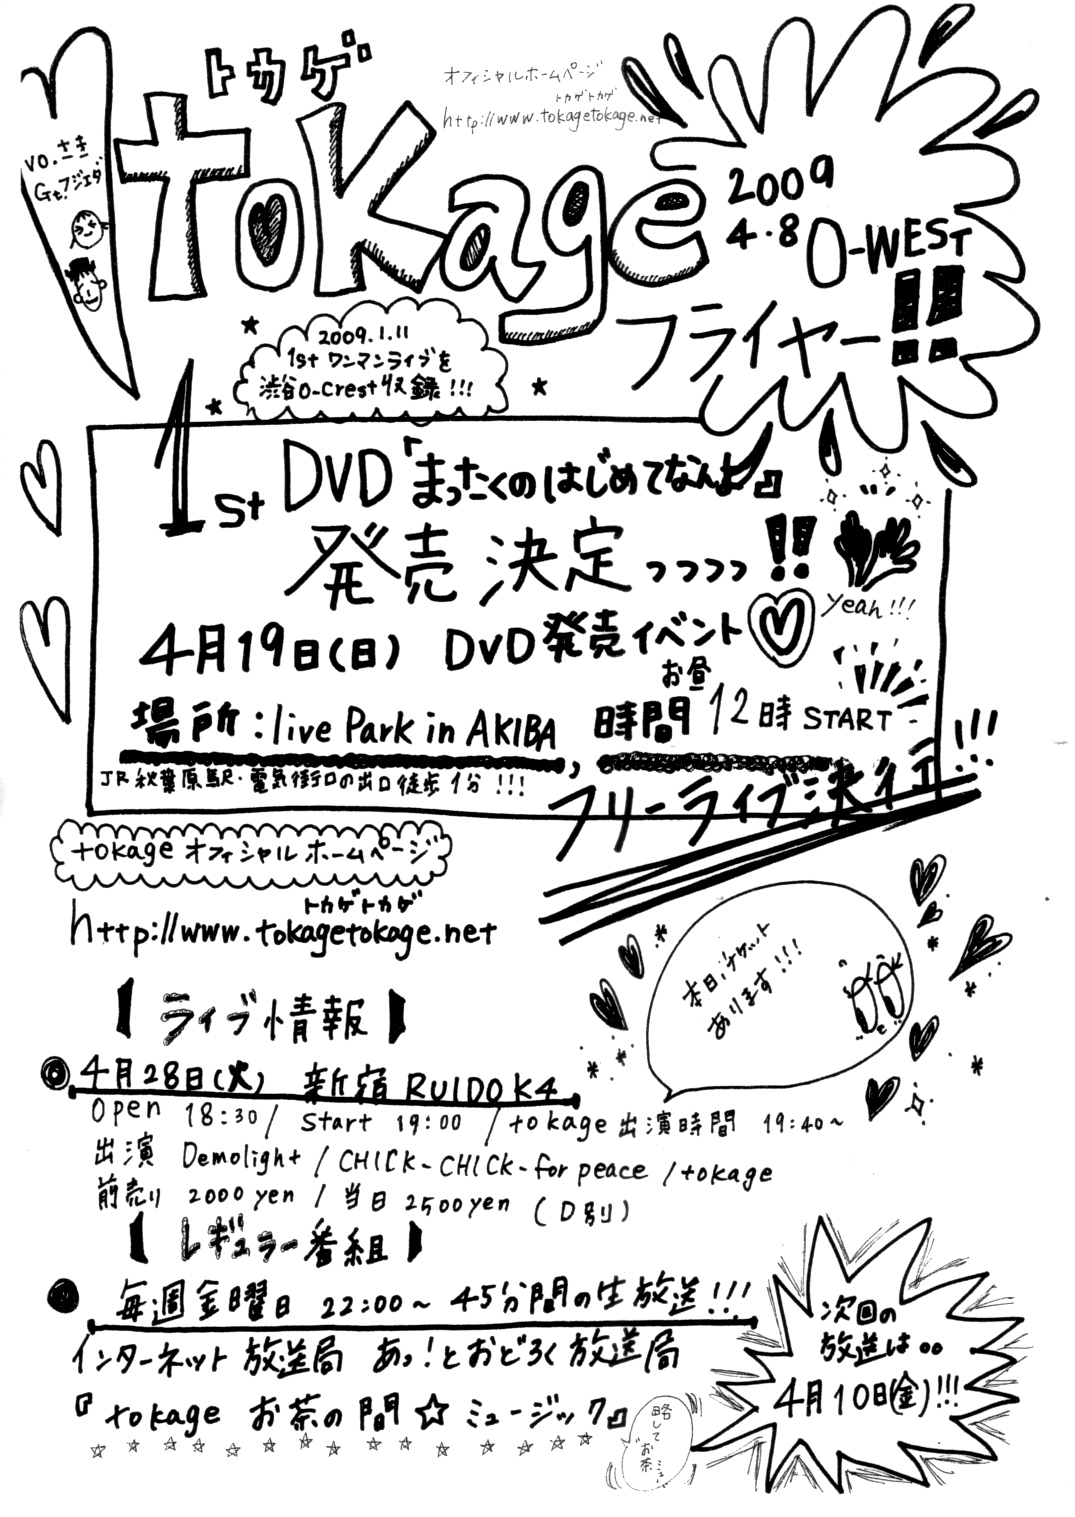 トカゲ
tokage
オフィシャルホームページ
トカゲトカゲ
http://www.tokagetokage.net
vo.さき
Gt.フジエダ
2009
4.8 O-WEST
フライヤー!!
2009.1.11
1st ワンマンライブを
渋谷O-Crest収録!!!
1st DVD『まったくのはじめてなんよ』
発売決定っっっっ!!
yeah!!!
4月19日(日) DVD発売イベント
お昼
場所:live Park in AKIBA, 時間12時START
JR秋葉原駅・電気街口の出口徒歩1分!!!
フリーライブ決行!!!
tokage オフィシャルホームページ
トカゲトカゲ
http://www.tokagetokage.net
本日、チケット
あります!!!
【ライブ情報】
4月28日(火) 新宿 RUIDO K4
open 18:30/ start 19:00 /tokage出演時間 19:40~
出演 Demolight / CHICK-CHICK-for peace / tokage
前売り 2000yen / 当日 2500yen (D別)
【レギュラー番組】
毎週金曜日 22:00~ 45分間の生放送!!!
インターネット放送局 あっ!とおどろく放送局
『tokage お茶の間☆ミュージック』
略して
お茶ミュー
次回の
放送は。。
4月10日(金)!!!